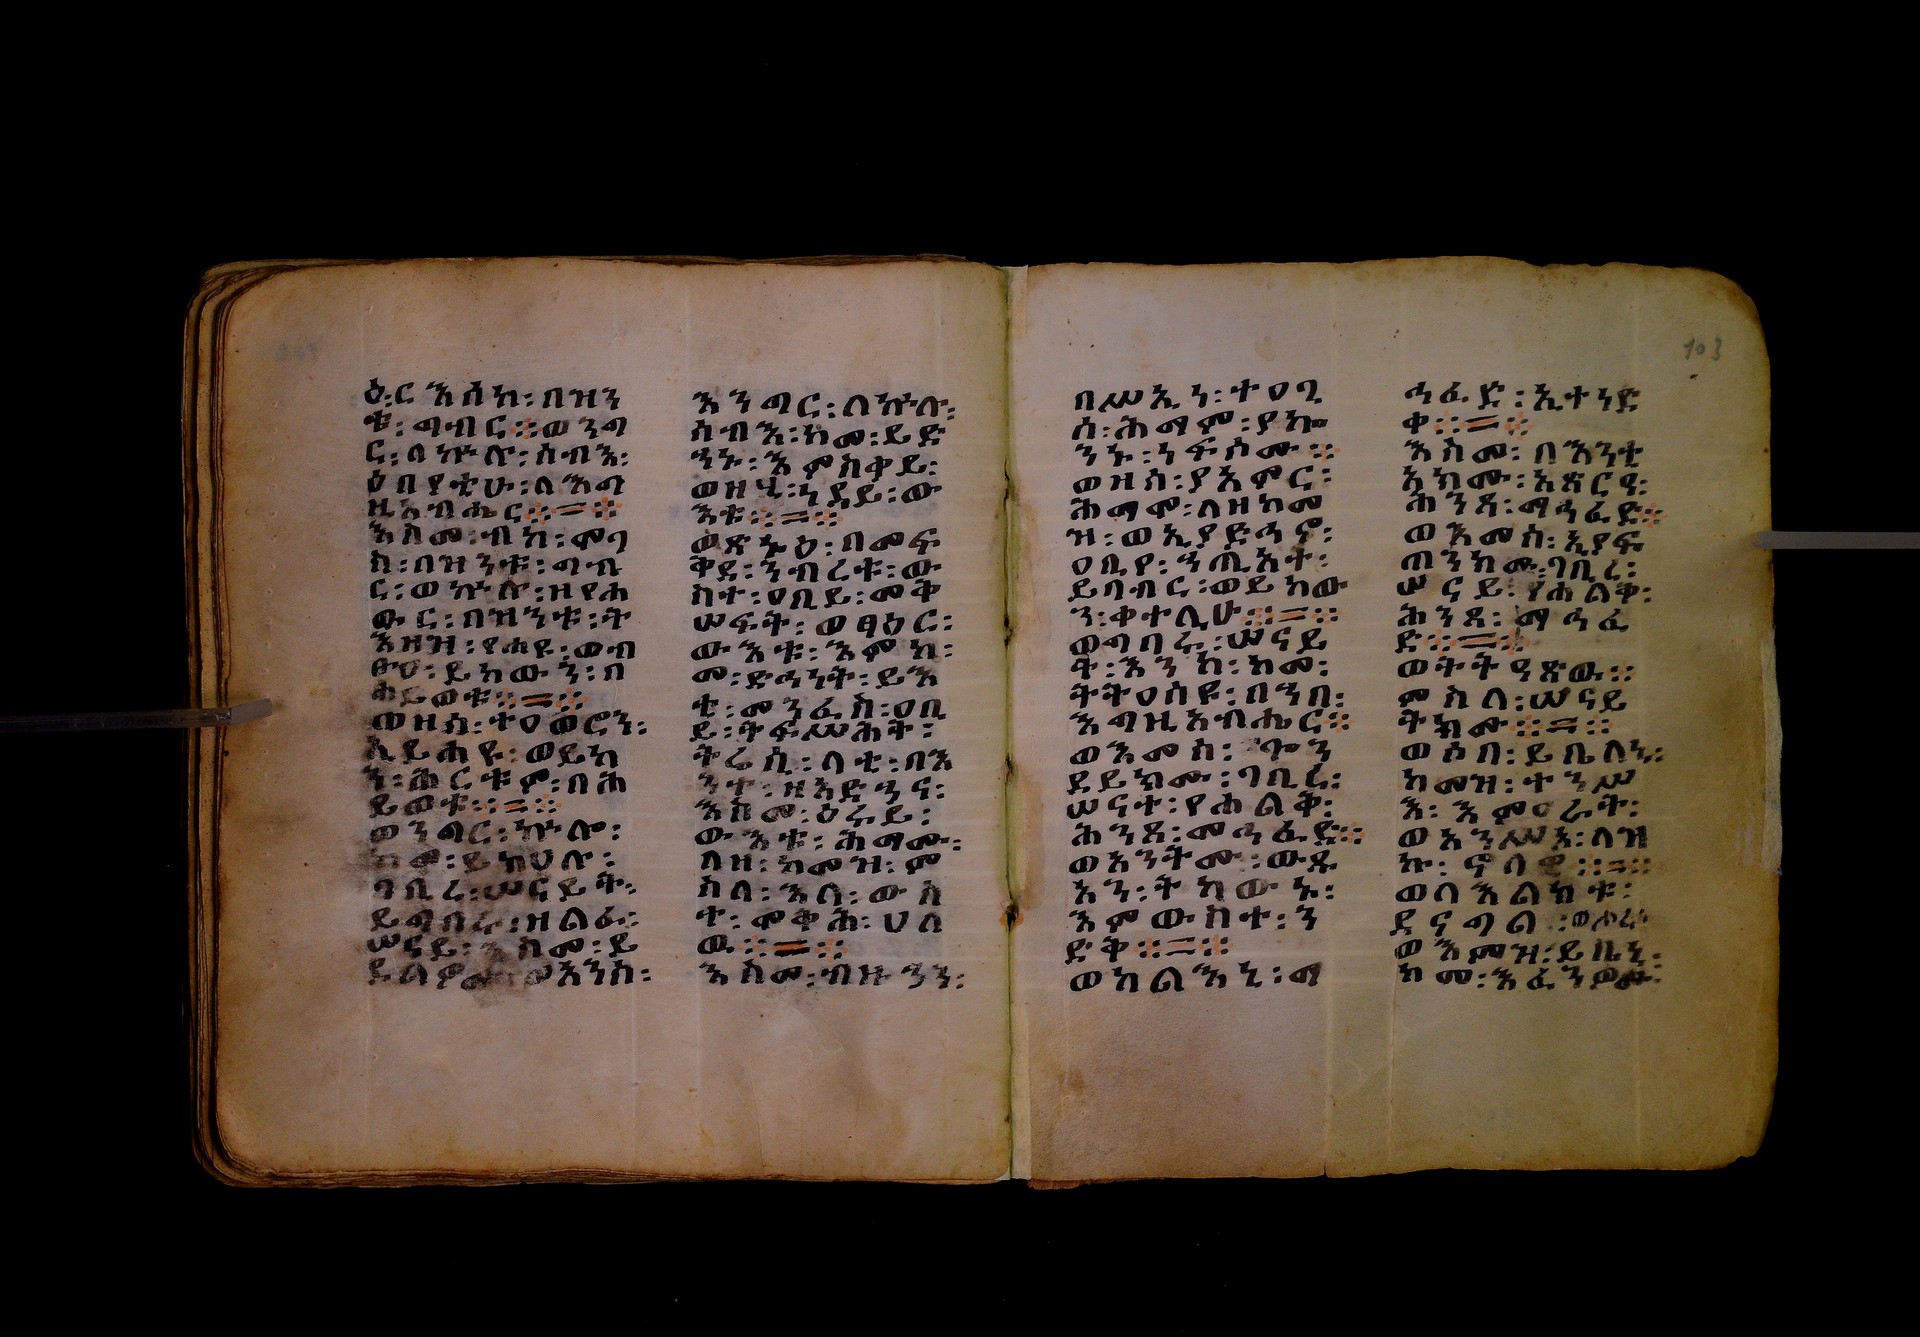 ዕር እስከ፡ በዝን
ቱ፡ ግብር፨ ወ ንግ
ር፡ ለ ኵሉ፡ ሰብእ፡
ዕበያቲሁ፡ ለእግ
ዚአብሔር፨=፨
እስመ፡ ብከ፡ ሞገ
ስ፡ በዝንቱ፡ ግብ
ር፡ ወኵሉ፡ ዘየሐ
ውር፡ በዝንቱ፡ ት
እዛዝ፡ የሐዩ፡ ወብ
ፁዐ፡ ይከውን፡ በ
ሕይወቱ፨=፨
ወዘሰ፡ ተዐወሮን፡
ኢይሐዩ፡ ወይከ
ን፡ ሕርቱም፡ በሕ
ይወቱ፨=፨
ወንግር፡ ኵሎ፡
ከመ፡ ይክሀሉ፡
ገቢረ፡ ሠናይት፡
ይግበሩ፡ ዘልፈ፡
ሠናይ፡ እስመ፡ ይ
ደልዎሙ፡ ወእንከ፡
እንግር፡ ለኵሉ፡
ሰብእ፡ ከመ፡ ይድ
ኅኑ፡ እምሰቀይ፡
ወዘሂ፡ ነዳይ፡ ው
እቱ፨=፨
ወጽኑዕ፡ በመፍ
ቅደ፡ ንብረቱ፡ ው
ስተ፡ ዐቢይ፡ መቅ
ሠፍት፡ ወፃዕር፡
ውእቱ፡ እምከ፡
መ፡ ድኅንት፡ ይእ
ቲ፡ መንፈስ፡ ዐቢ
ይ፡ ትፍሥሕት፡
ትሬሲ፡ ባቲ፡ በእ
ንተ፡ ዘአድኀና፡
እስመ፡ ዕሩይ፡
ውእቱ፡ ሕማሙ፡
ለዘ፡ ከመዝ፡ ም
ስለ፡ እለ፡ ውስ
ተ፡ ሞቅሕ፡ ሀለ
ዉ፨=፨
እስመ፡ ብዙኀን፡
በሥኢን፡ ተዐገ
ሰ፡ ሕማም፡ ያኰ
ንኑ፡ ነፍሶሙ፨
ወዘሰ፡ ያአምር፡
ሕማሞ፡ ለዘከመ
ዝ፡ ወኢያድኅኖ፡
ዐቢየ፡ ኀጢአተ፡
ይገብር፡ ወይከው
ን፡ ቀተሊሁ፨=፨
ወግበሩ፡ ሠናይ
ተ፡ እንከ፡ ከመ፡
ትትዐሰዩ፡ በኀበ፡
እግዚአብሔር፨
ወእመሰ፡ ጐን
ደይክሙ፡ ገቢረ፡
ሠናተ፡ የሐልቅ፡
ሕንጻ፡ መኅፈድ፨
ወአንትሙ፡ ውጹ
አን፡ ትከውኑ፡
እምውስተ፡ ን
ድቅ፨=፨
ወካልእኒ፡ ማ
ኅፈድ፡ ኢተነድ
ቀ፨=፨
እስመ፡ በእንቲ
አክሙ፡ አጽርዓ፡
ሕንጻ፡ ማኅፈድ፨
ወእመሰ፡ ኢያፍ
ጠንክሙ፡ ገቢረ፡
ሠናይ፡ የሐልቅ፡
ሕንጻ፡ ማኅፈ
ድ፨=፨
ወትትዓጽዉ፨
ምስለ፡ ሠናይ
ትክሙ፨=፨
ወሶበ፡ ይቤለኒ፡
ከመዝ፡ ተንሥ
እ፡ እምዐራት፡
ወአንሥአ፡ ለዝ
ኩ፡ ኖባዊ፨=፨
ወለእልክቱ፡
ደናግል፡ ወሖረ፡
ወእምዝ፡ ይቤኒ፡
ከመ፡ እፈንዎሙ፡
103